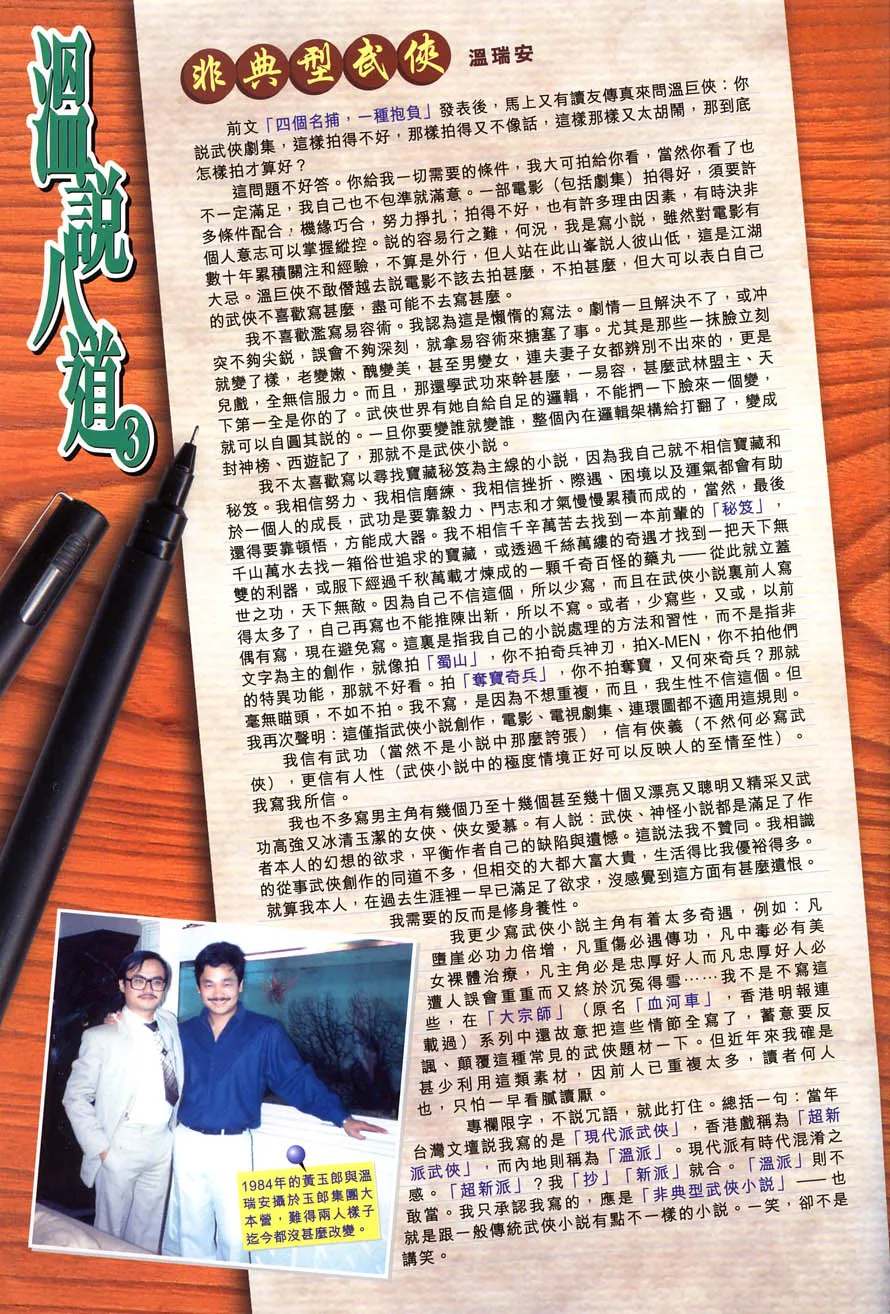 溫說八道3
非典型武俠
溫瑞安
前文「四個名捕，一種抱負」發表後，馬上又有讀友傳真來問溫巨俠：你
説武俠劇集，這樣拍得不好，那樣拍得又不像話，這樣那樣又太胡鬧，那到底
怎樣拍才算好？
這問題不好答。你給我一切需要的條件，我大可拍給你看，當然你看了也
不一定滿足，我自己也不包準就滿意。一部電影（包括劇集）拍得好，須要許
多條件配合，機緣巧合，努力掙扎；拍得不好，也有許多理由因素，有時決非
個人意志可以掌握縱控。説的容易行之難，何況，我是寫小説，雖然對電影有
數十年累積關注和經驗，不算是外行，但人站在此山峯説人彼山低，這是江湖
大忌。溫巨俠不敢僭越去説電影不該去拍甚麼，不拍甚麼，但大可以表白自己
的武俠不喜歡寫甚麼，盡可能不去寫甚麼。
我不喜歡濫寫易容術。我認為這是懶惰的寫法。劇情一旦解決不了，或冲
突不夠尖鋭，誤會不夠深刻，就拿易容術來搪塞了事。尤其是那些一抹臉立刻
就變了樣，老變嫩、醜變美，甚至男變女，連夫妻子女都辨別不出來的，更是
兒戲，全無信服力。而且，那還學武功來幹甚麼，一易容，甚麼武林盟主、天
下第一全是你的了。武俠世界有她自給自足的邏輯，不能捫一下臉來一個變，
就可以自圓其説的。一旦你要變誰就變誰，整個內在邏輯架構給打翻了，變成
封神榜、西遊記了，那就不是武俠小説。
我不太喜歡寫以尋找寶藏秘笈為主線的小説，因為我自己就不相信寶藏和
秘笈。我相信努力、我相信磨練、我相信挫折、際遇、困境以及運氣都會有助
於一個人的成長，武功是要靠毅力、鬥志和才氣慢慢累積而成的，當然，最後
還得要靠頓悟，方能成大器。我不相信千辛萬苦去找到一本前輩的「秘笈」，
千山萬水去找一箱俗世追求的寶藏，或透過千絲萬縷的奇遇才找到一把天下無
雙的利器，或服下經過千秋萬載才煉成的一顆千奇百怪的藥丸——從此就立蓋
世之功，天下無敵。因為自己不信這個，所以少寫，而且在武俠小説裏前人寫
得太多了，自己再寫也不能推陳出新，所以不寫。或者，少寫些，又或，以前
偶有寫，現在避免寫。這裏是指我自己的小説處理的方法和習性，而不是指非
文字為主的創作，就像拍「蜀山」，你不拍奇兵神刃，拍X-MEN，你不拍他們
的特異功能，那就不好看。拍「奪寶奇兵」，你不拍奪寶，又何來奇兵？那就
毫無瞄頭，不如不拍。我不寫，是因為不想重複，而且，我生性不信這個。但
我再次聲明：這僅指武俠小説創作，電影、電視劇集、連環圖都不適用這規則。
我信有武功（當然不是小説中那麼誇張），信有俠義（不然何必寫武
俠），更信有人性（武俠小説中的極度情境正好可以反映人的至情至性）。
我寫我所信。
我也不多寫男主角有幾個乃至十幾個甚至幾十個又漂亮又聰明又精采又武
功高強又冰清玉潔的女俠、俠女愛慕。有人説：武俠、神怪小説都是滿足了作
者本人的幻想的欲求，平衡作者自己的缺陷與遺憾。這説法我不贊同。我相識
的從事武俠創作的同道不多，但相交的大都大富大貴，生活得比我優裕得多。
就算我本人，在過去生涯裡一早已滿足了欲求，沒感覺到這方面有甚麼遺恨。
我需要的反而是修身養性。
我更少寫武俠小説主角有着太多奇遇，例如：凡
墮崖必功力倍增，凡重傷必遇傳功，凡中毒必有美
女裸體治療，凡主角必是忠厚好人而凡忠厚好人必
遭人誤會重重而又終於沉冤得雪……我不是不寫這
些，在「大宗師」（原名「血河車」，香港明報連
載過）系列中還故意把這些情節全寫了，蓄意要反
諷、顛覆這種常見的武俠題材一下。但近年來我確是
甚少利用這類素材，因前人已重複太多，讀者何人
也，只怕一早看膩讀厭。
專欄限字，不說冗語，就此打住。總括一句：當年
台灣文壇説我寫的是「現代派武俠」，香港戲稱為「超新
派武俠」，而內地則稱為「溫派」。現代派有時代混淆之
感。「超新派」？我「抄」「新派」就合。「溫派」則不
敢當。我只承認我寫的，應是「非典型武俠小説」——也
就是跟一般傳統武俠小説有點不一樣的小説。一笑，卻不是
講笑。
1984年的黃玉郎與溫
瑞安攝於玉郎集團大
本營，難得兩人樣子
迄今都沒甚麼改變。